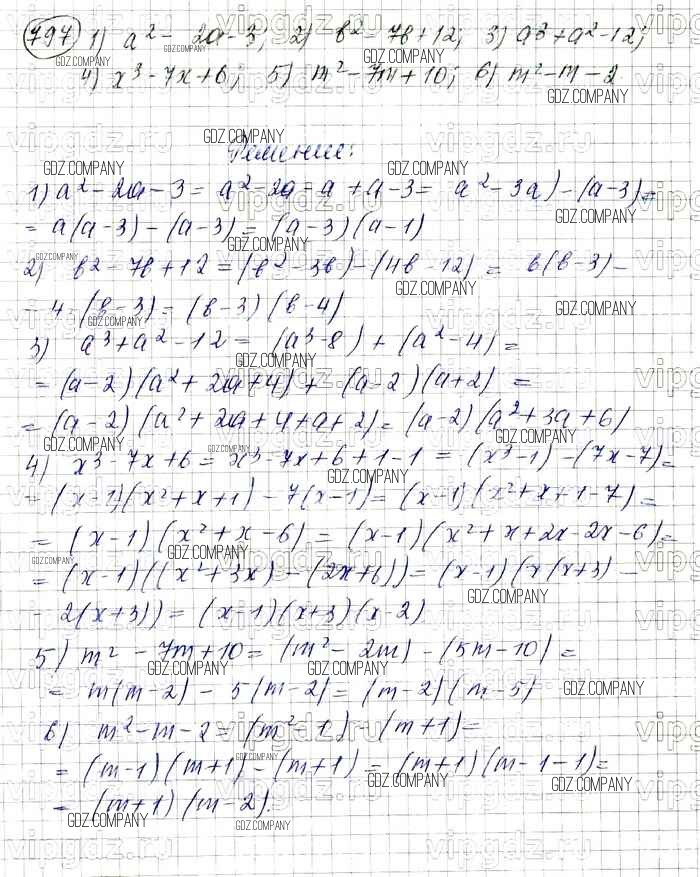 797 1) a² - 2a - 3; 2) в² - 7в + 12; 3) a³ + a² - 12;
4) x³ - 7x + 6; 5) m² - 7m + 10; 6) m² - m - 2.
Решение:
1) a² - 2a - 3 = a² - 2a - a + a - 3 = a² - 3a) - (a - 3) =
= a(a - 3) - (a - 3) = (a - 3)(a - 1)
2) в² - 7в + 12 = (в² - 3в) - (4в - 12) = в(в - 3) -
- 4·(в - 3) = (в - 3)(в - 4)
3) a³ + a² - 12 = (a³ - 8) + (a² - 4) =
= (a - 2)(a² + 2a + 4) + (a - 2)(a + 2) =
= (a - 2)(a² + 2a + 4 + a + 2) = (a - 2)(a² + 3a + 6)
4) x³ - 7x + 6 = x³ - 7x + 6 + 1 - 1 = (x³ - 1) - (7x - 7) =
= (x - 1)(x² + x + 1) - 7(x - 1) = (x - 1)(x² + x + 1 - 7) =
= (x - 1)(x² + x - 6) = (x - 1)(x² + x + 2x - 2x - 6) =
= (x - 1)((x² + 3x) - (2x + 6)) = (x - 1)(x(x + 3) -
- 2(x + 3)) = (x - 1)(x + 3)(x - 2)
5) m² - 7m + 10 = (m² - 2m) - (5m - 10) =
= m(m - 2) - 5(m - 2) = (m - 2)(m - 5)
6) m² - m - 2 = (m² - 1) - (m + 1) =
= (m - 1)(m + 1) - (m + 1) = (m + 1)(m - 1 - 1) =
= (m + 1)(m - 2).
GDZ.COMPANY
vipgdz.ru